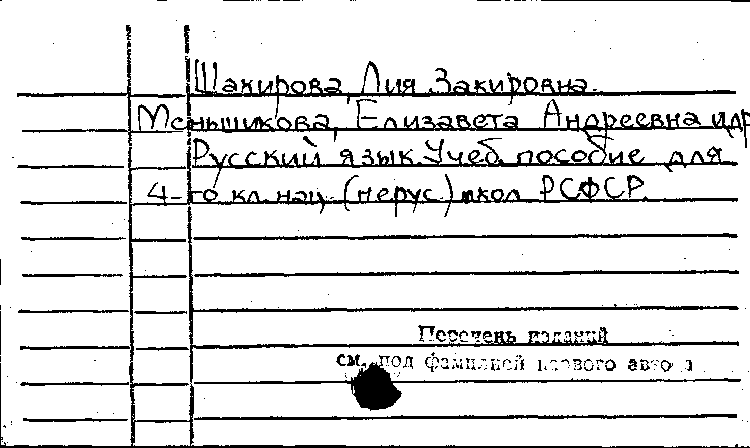 Шакирова, Лия Закировна.
Меньшикова, Елизавета Андреевна и др
Русский язык. Учеб. пособие для
4-го кл. нац. (нерус) школ РСФСР.
Перечень изданий
см. под фамилией первого автора